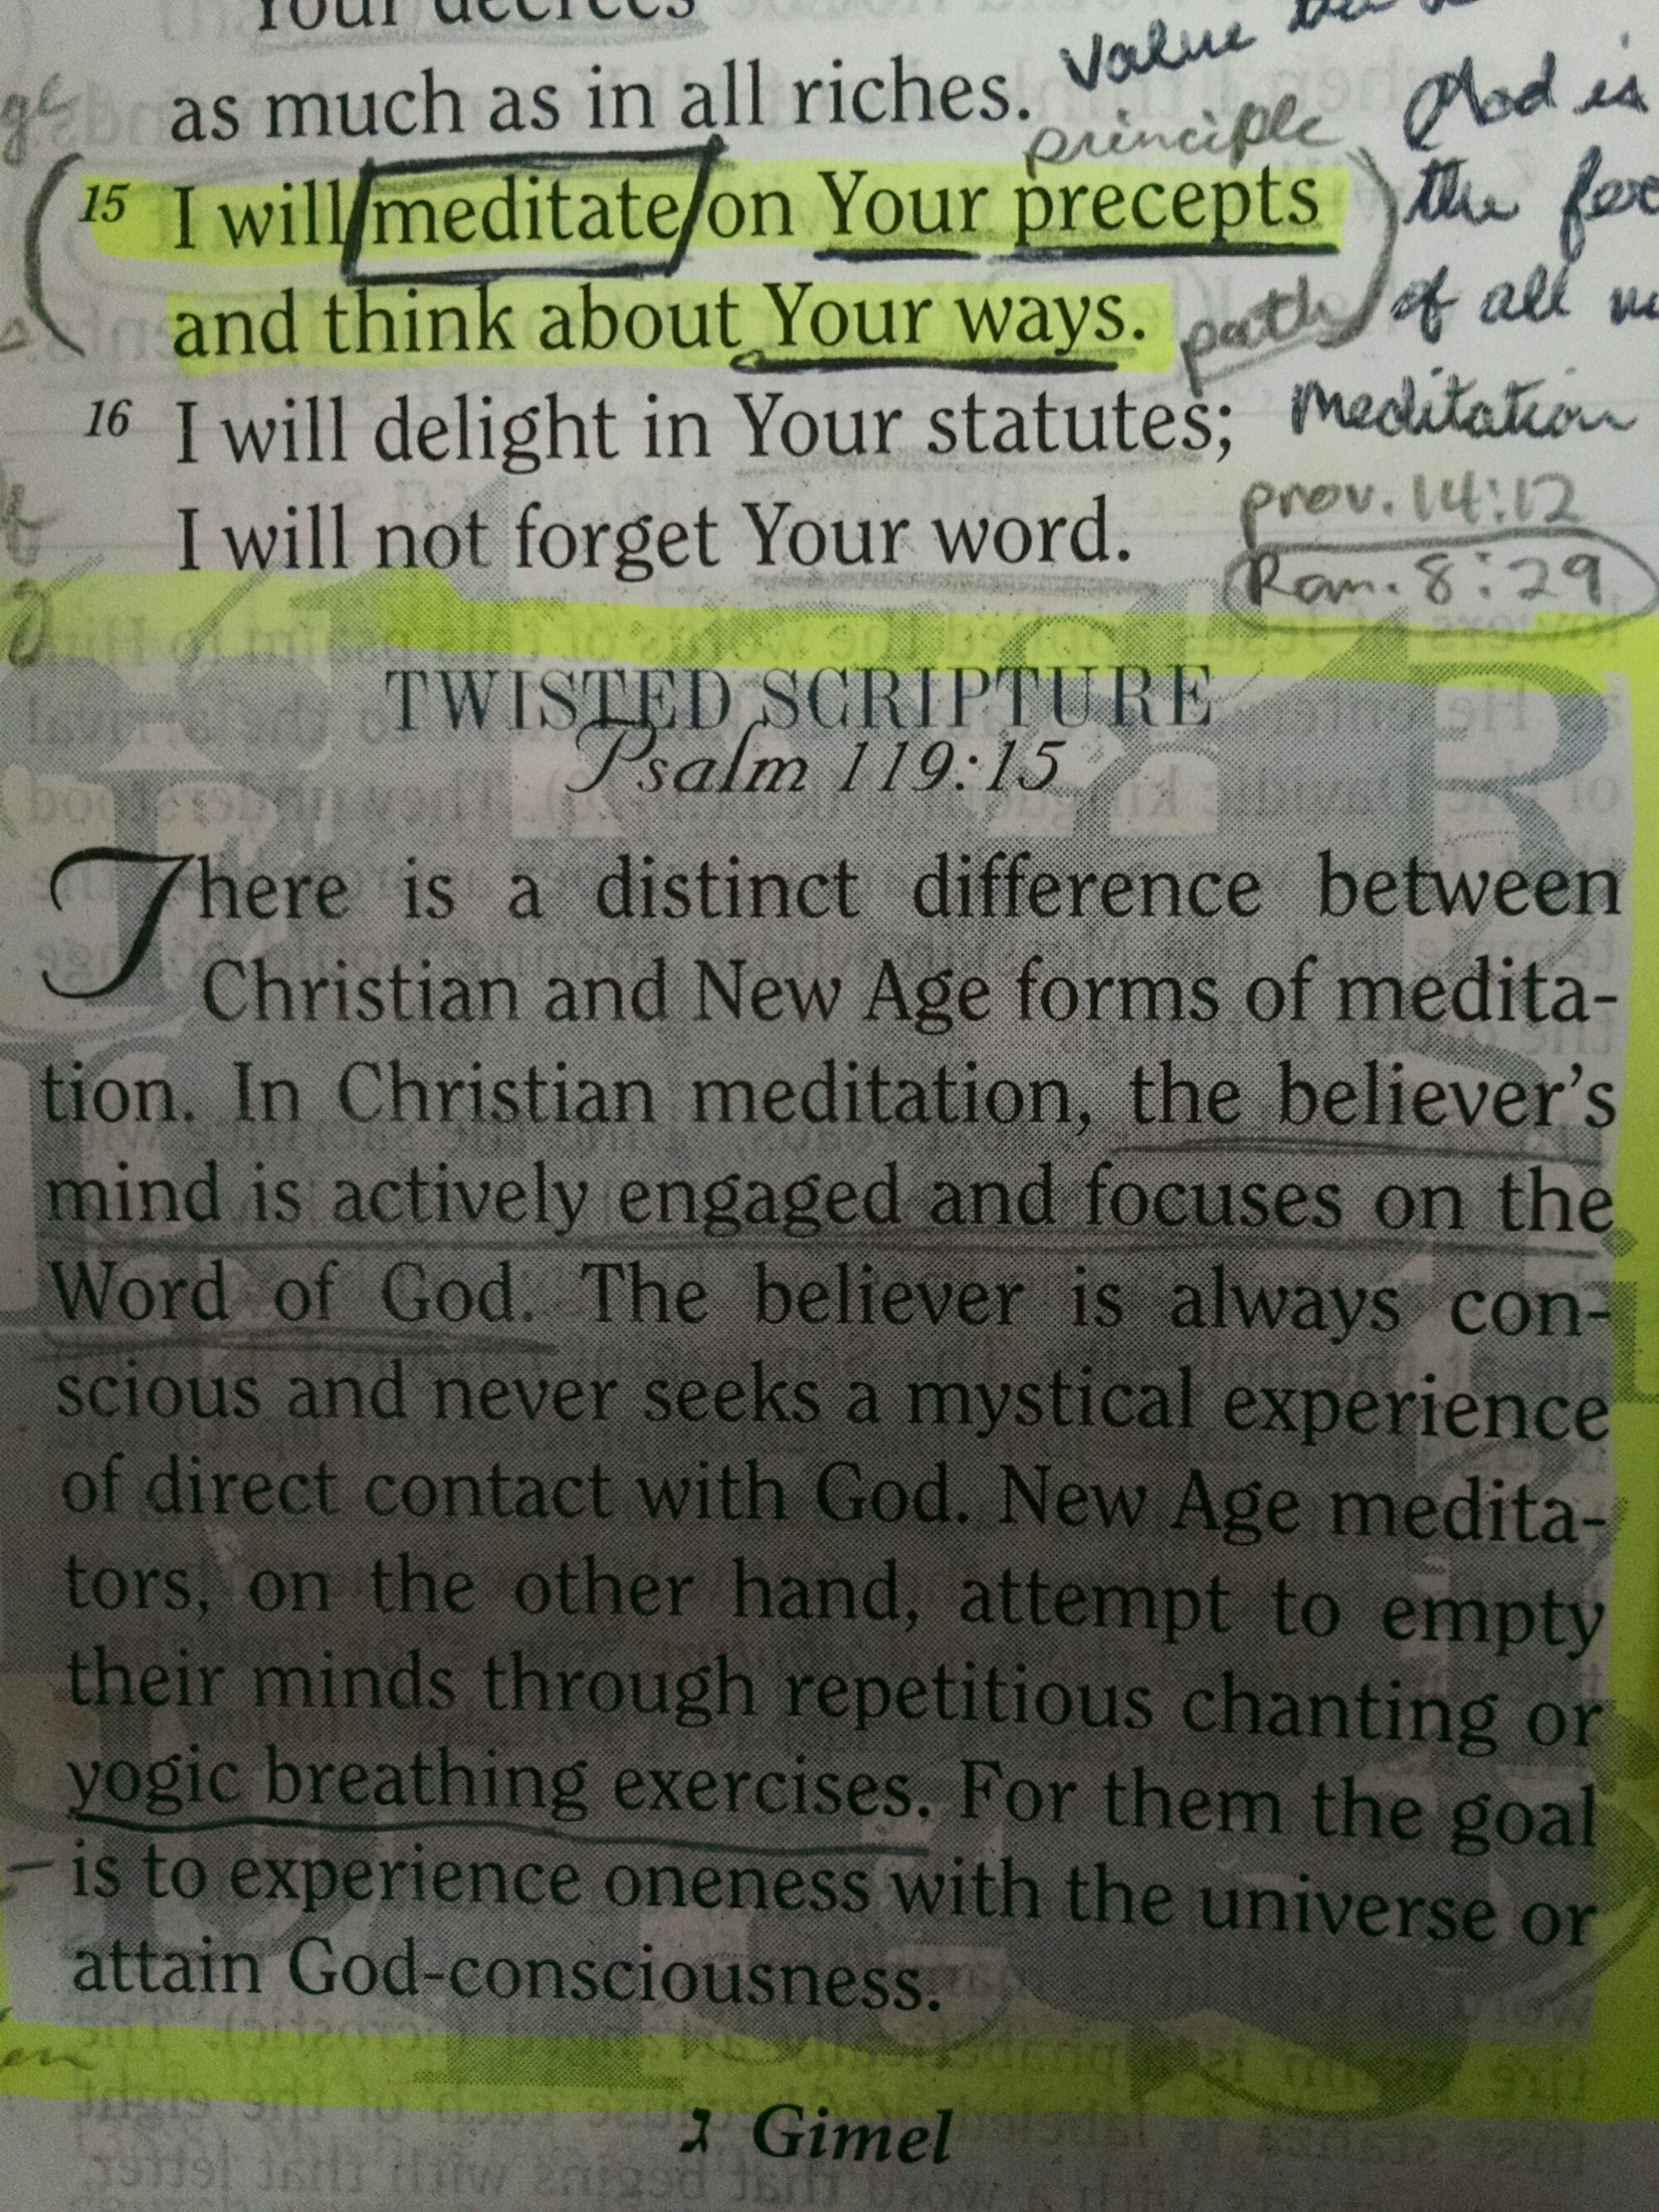 Your decrees
as much as in all riches.
value
principle
15 I will meditate on Your precepts
and think about Your ways.
path
God is
the
of all
Meditation
16 I will delight in Your statutes;
I will not forget Your word.
prov. 14:12
Rom. 8:29
TWISTED SCRIPTURE
Psalm 119:15
There is a distinct difference between
Christian and New Age forms of medita-
tion. In Christian meditation, the believer's
mind is actively engaged and focuses on the
Word of God. The believer is always con-
scious and never seeks a mystical experience
of direct contact with God. New Age medita-
tors, on the other hand, attempt to empty
their minds through repetitious chanting or
yogic breathing exercises. For them the goal
is to experience oneness with the universe or
attain God-consciousness.
ג Gimel